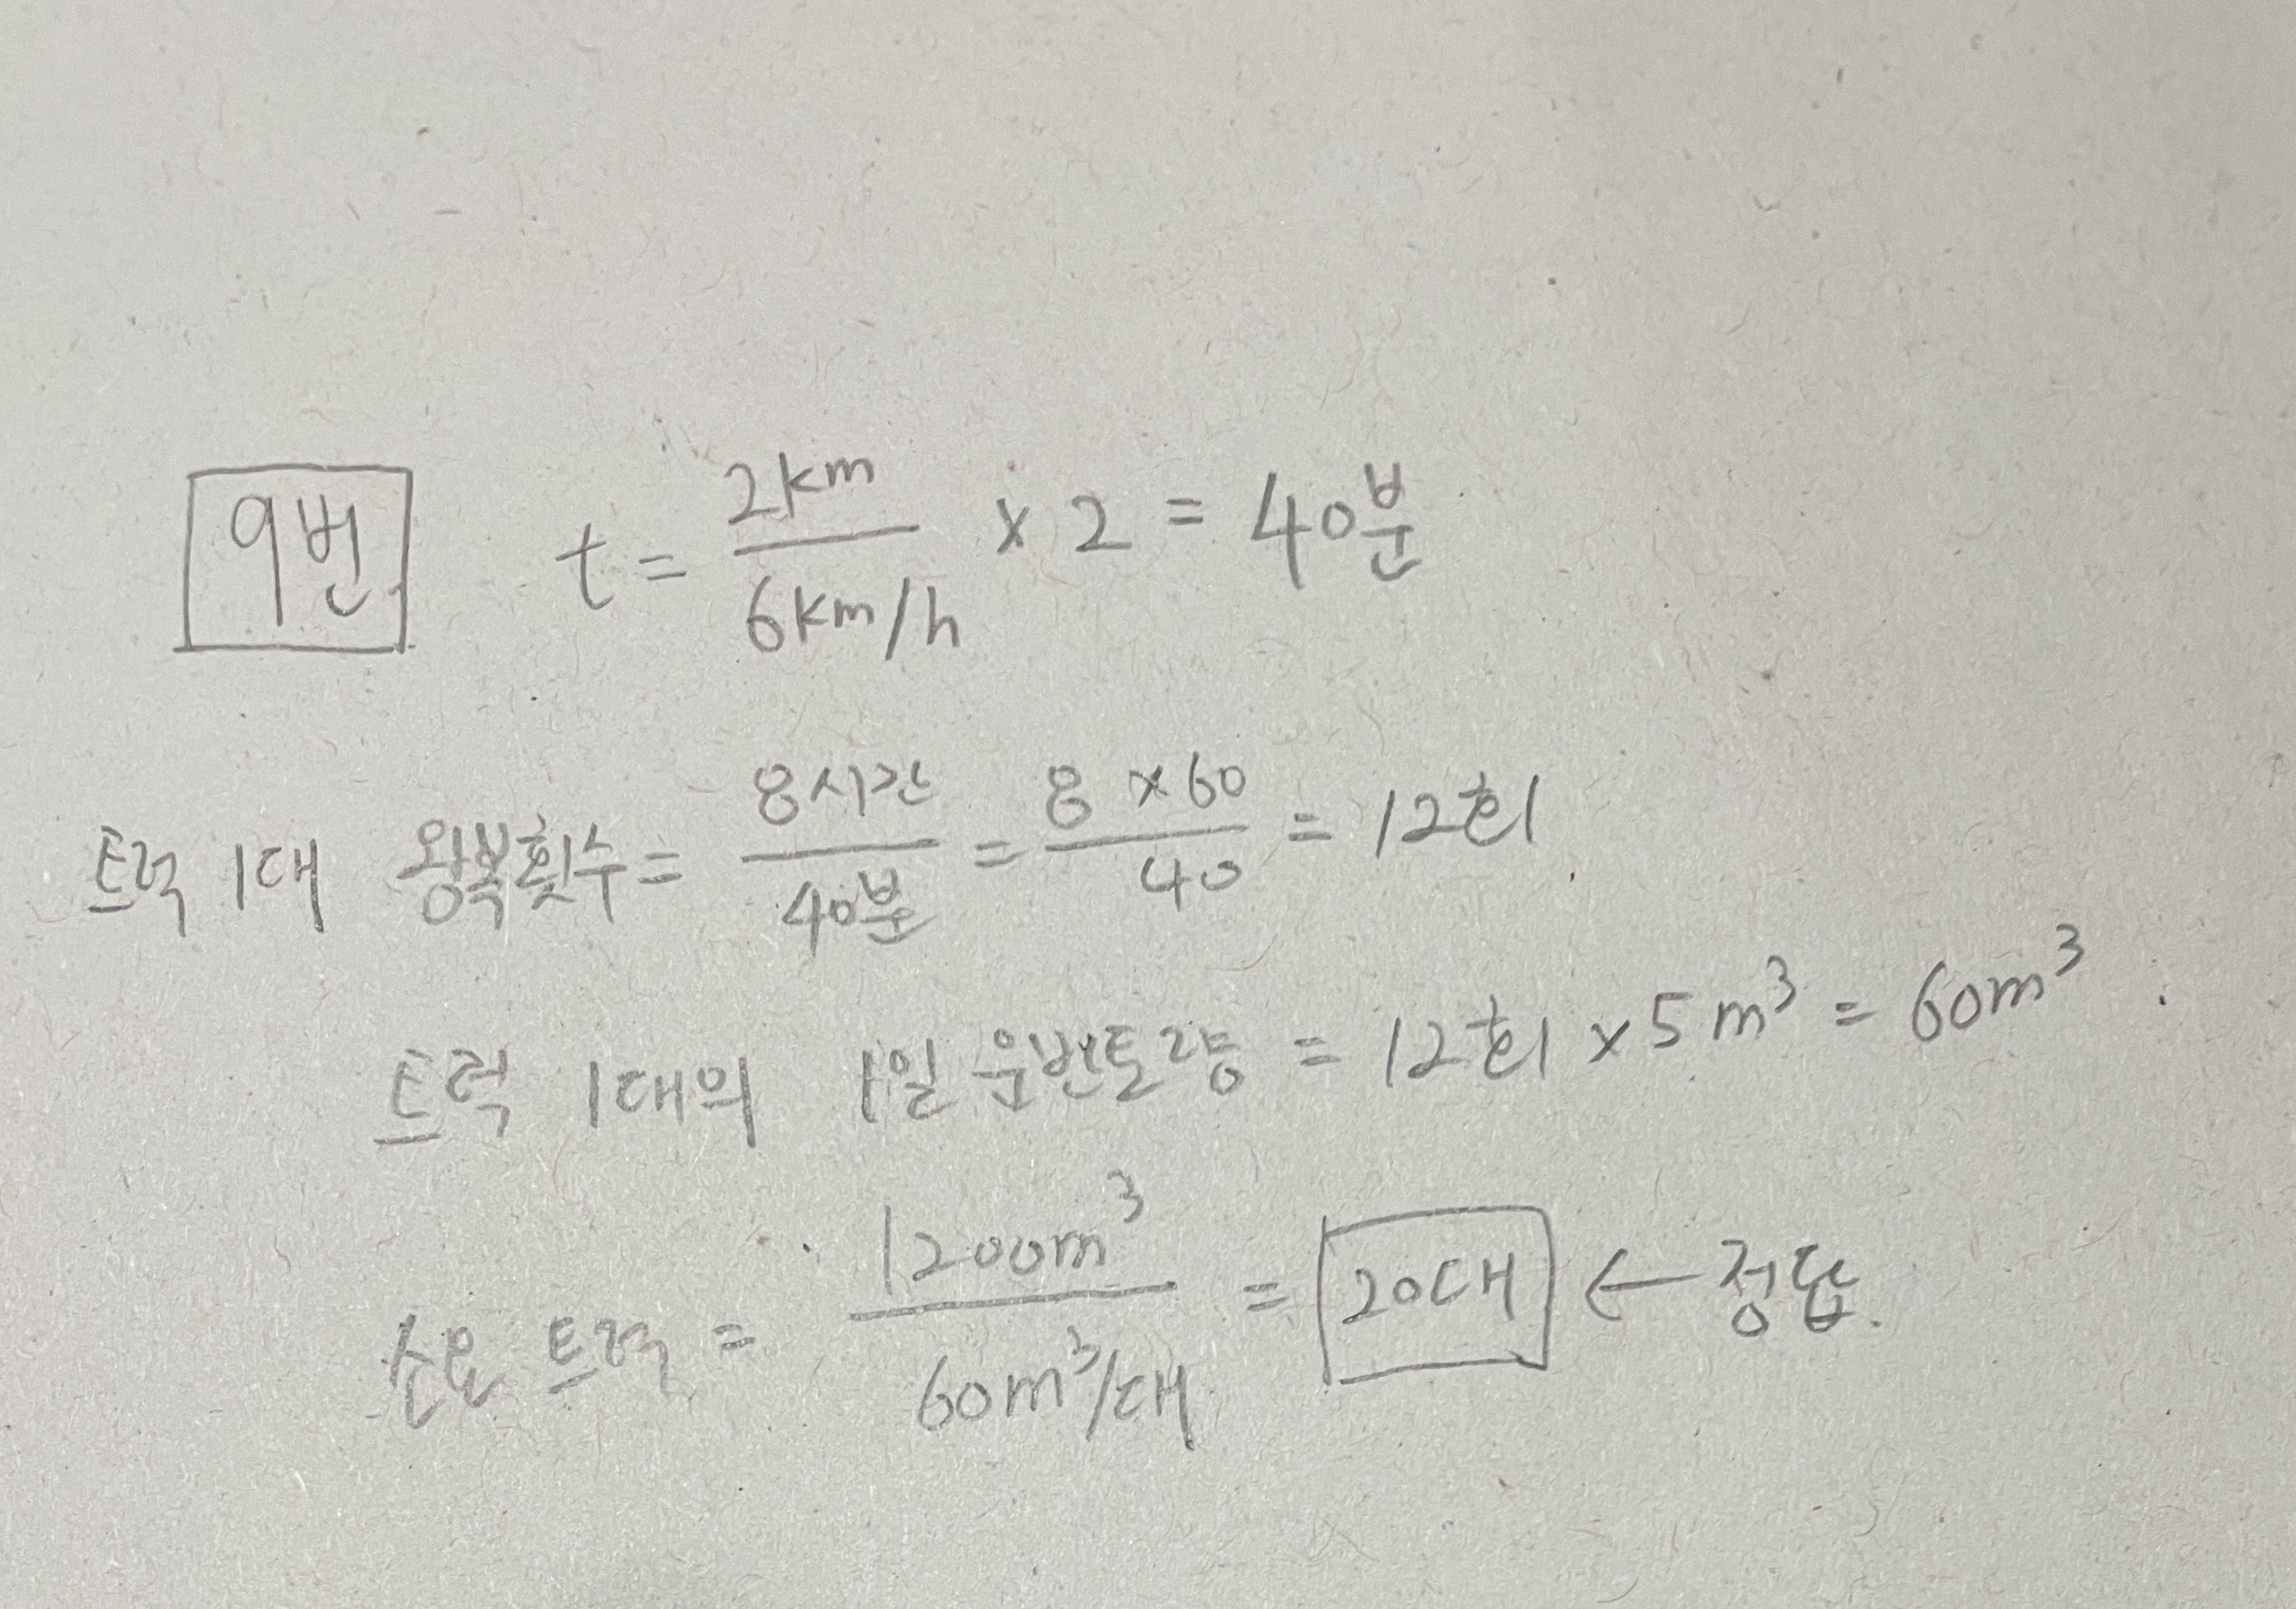 9번 t = 2km / 6km/h × 2 = 40분
트럭 1대 왕복횟수 = 8시간 / 40분 = 8 × 60 / 40 = 12회.
트럭 1대의 1일 운반토량 = 12회 × 5m³ = 60m³.
소요 트럭 = 1200m³ / 60m³/대 = 20대 ← 정답.